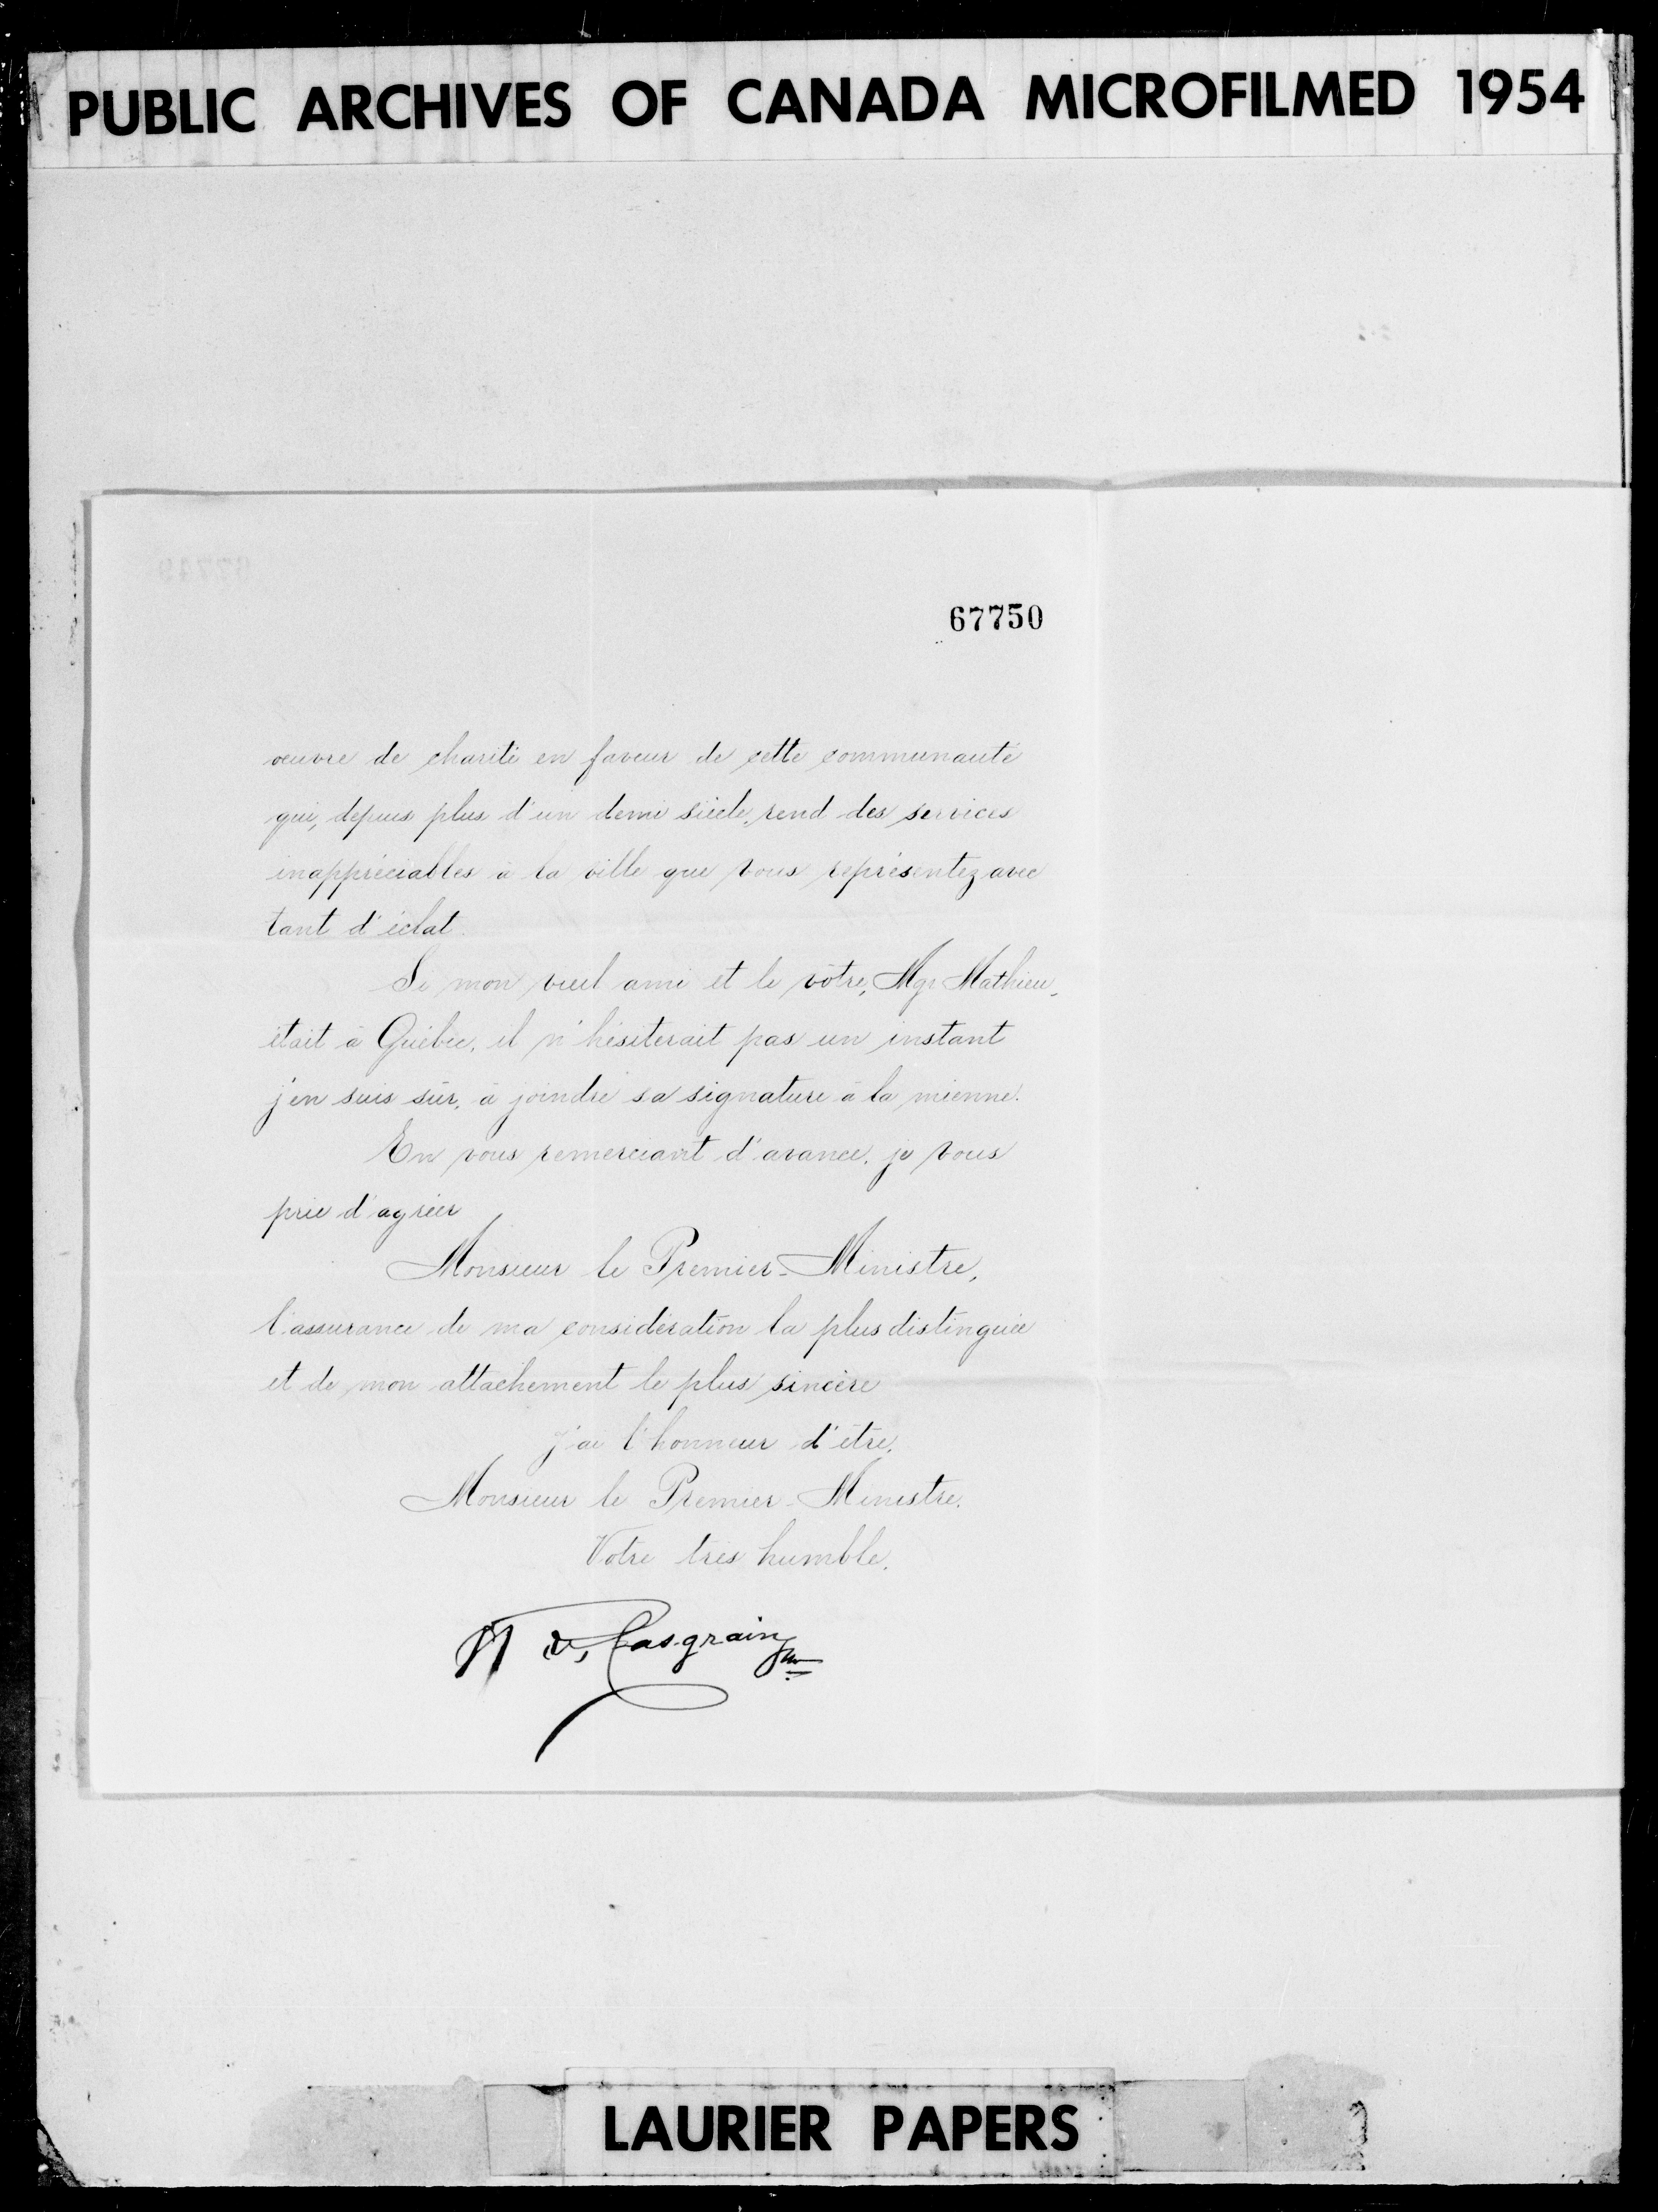 PUBLIC ARCHIVES OF CANADA MICROFILMED 1954
67750
œuvre de charité en faveur de cette communauté
qui, depuis plus d'un demi siècle, rend des services
inappréciables à la ville que vous représentez avec
tant d'éclat.
Si mon vieil ami et le vôtre, Mgr Mathieu,
était à Québec, il n'hésiterait pas un instant
j'en suis sûr, à joindre sa signature à la mienne.
En vous remerciant d'avance, je vous
prie d'agréer
Monsieur le Premier-Ministre,
l'assurance de ma considération la plus distinguée
et de mon attachement le plus sincère
j'ai l'honneur d'être,
Monsieur le Premier-Ministre,
Votre très humble,
Casgrain
LAURIER PAPERS